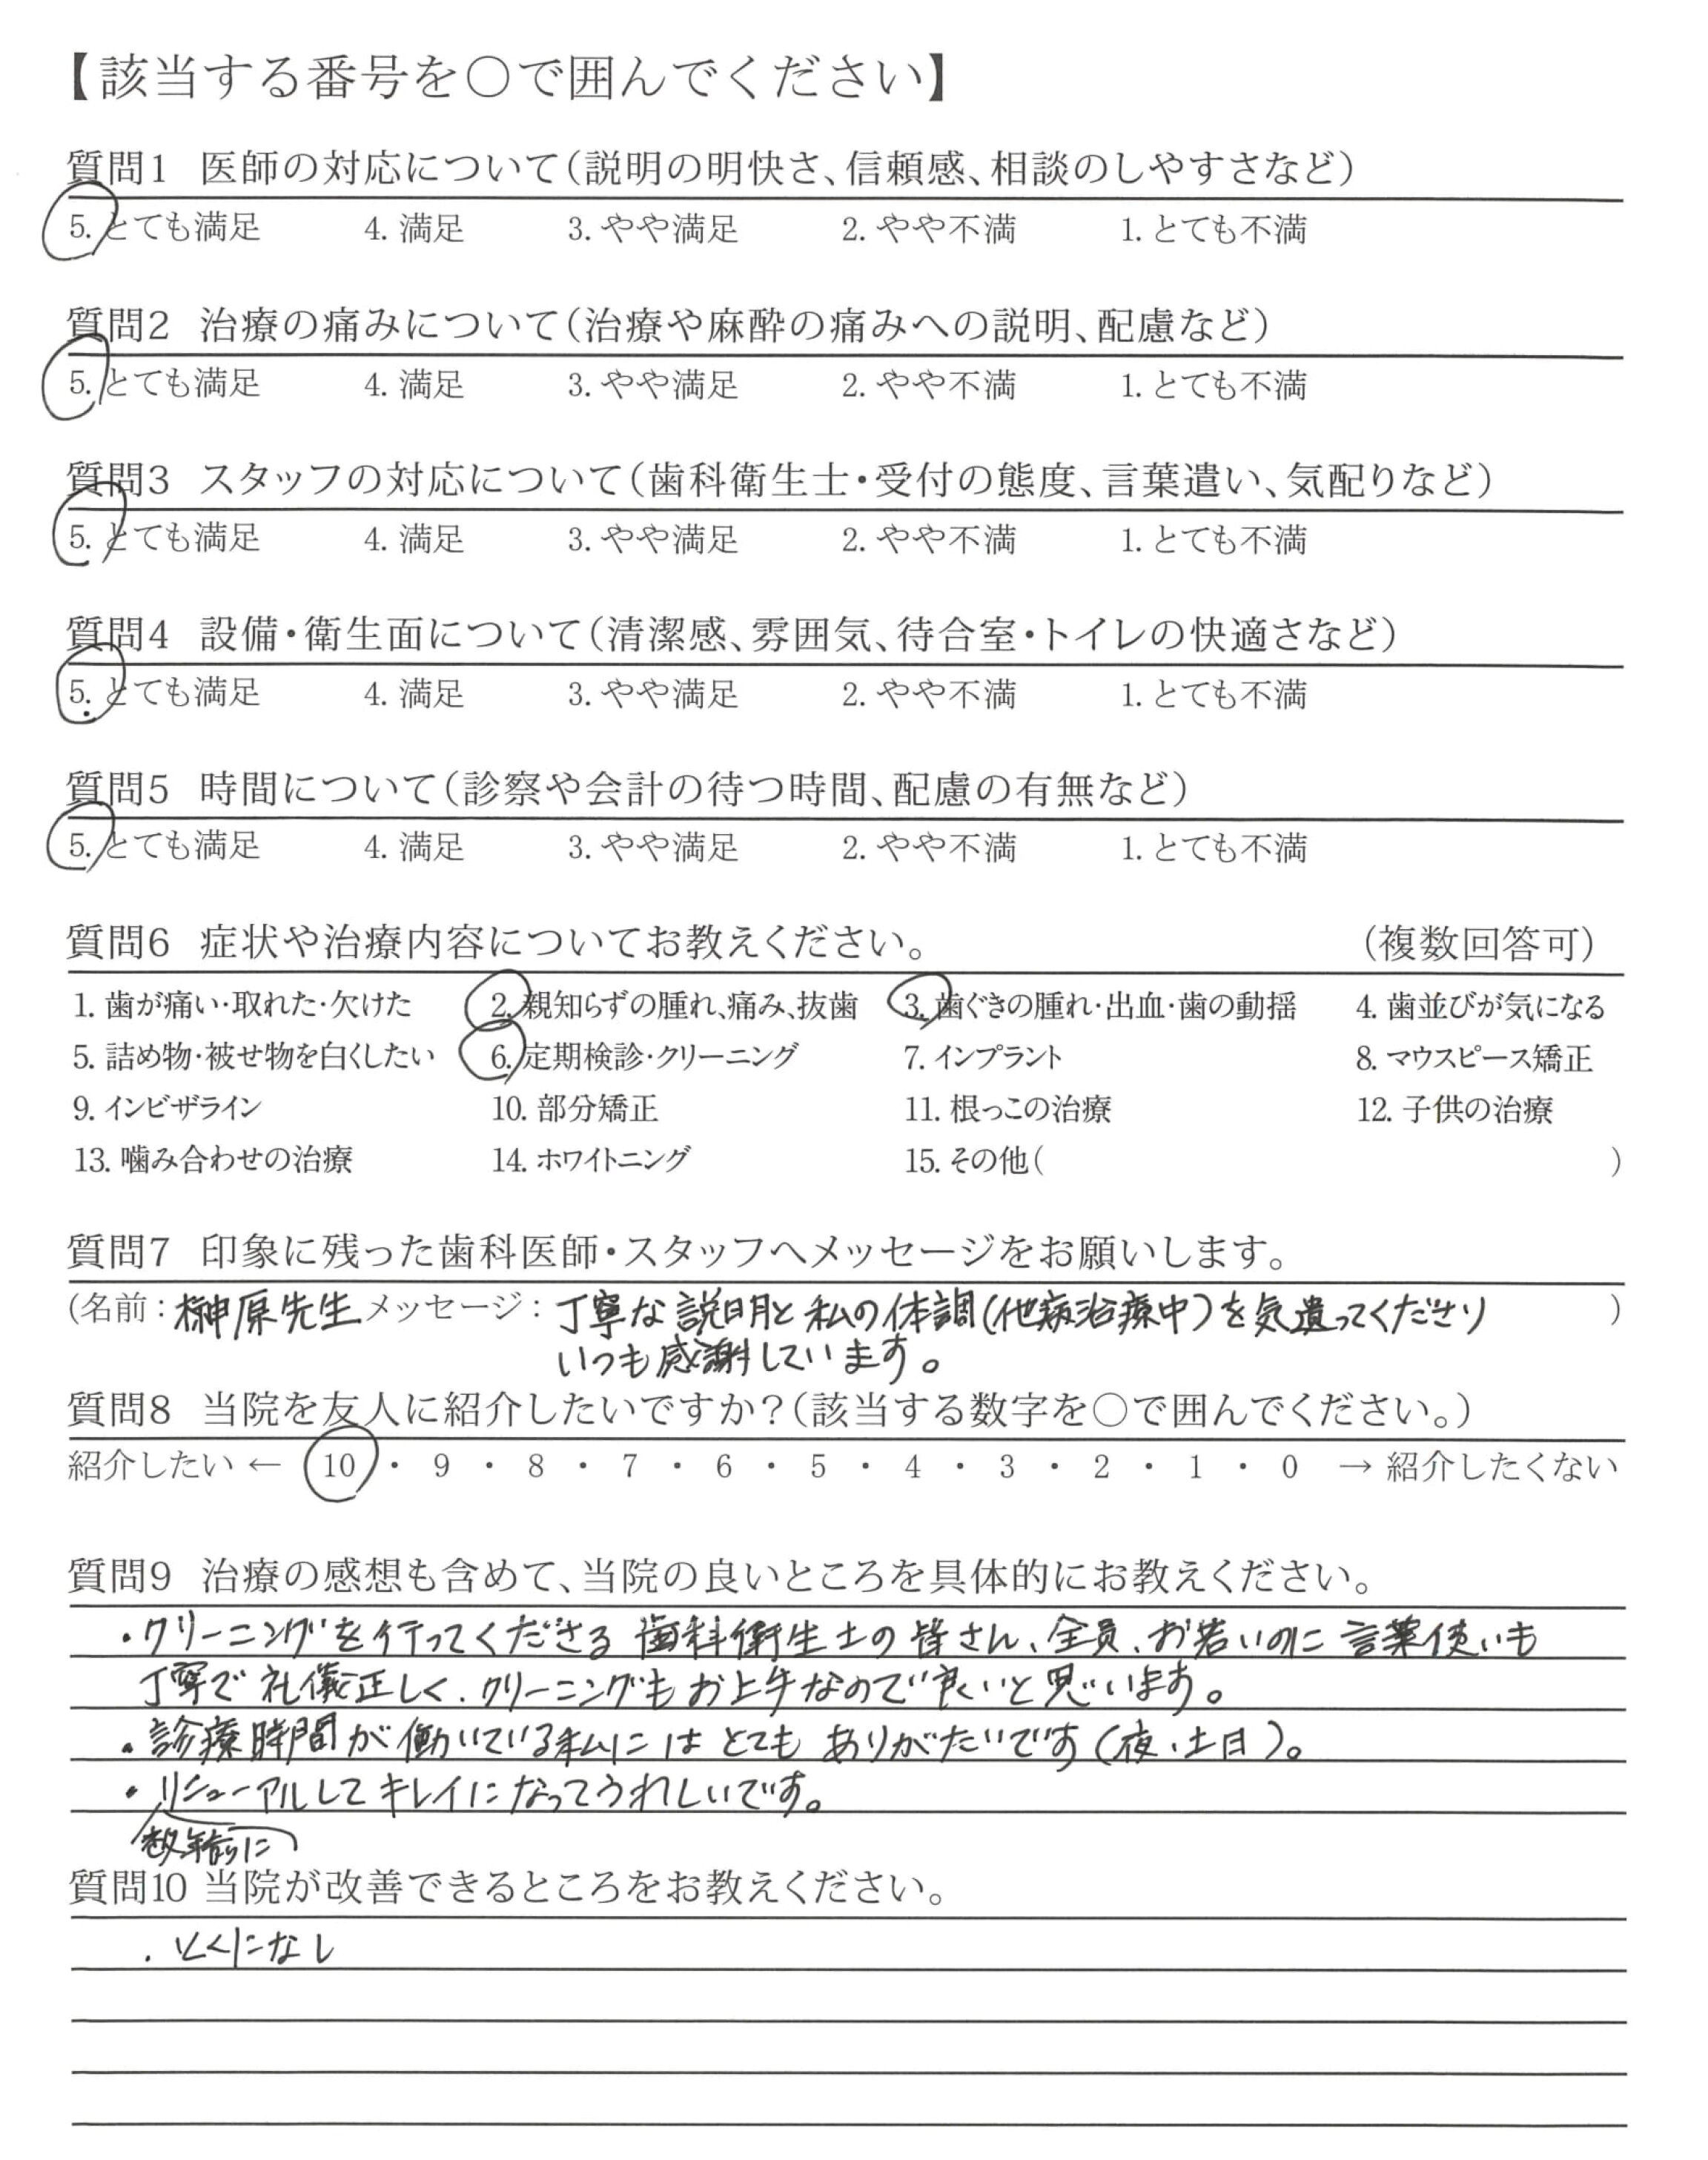 【該当する番号を○で囲んでください】
質問1 医師の対応について(説明の明快さ、信頼感、相談のしやすさなど)
5. とても満足 4. 満足 3. やや満足 2. やや不満 1. とても不満
質問2 治療の痛みについて(治療や麻酔の痛みへの説明、配慮など)
5. とても満足 4. 満足 3. やや満足 2. やや不満 1. とても不満
質問3 スタッフの対応について(歯科衛生士・受付の態度、言葉遣い、気配りなど)
5. とても満足 4. 満足 3. やや満足 2. やや不満 1. とても不満
質問4 設備・衛生面について(清潔感、雰囲気、待合室・トイレの快適さなど)
5. とても満足 4. 満足 3. やや満足 2. やや不満 1. とても不満
質問5 時間について(診察や会計の待つ時間、配慮の有無など)
5. とても満足 4. 満足 3. やや満足 2. やや不満 1. とても不満
質問6 症状や治療内容についてお教えください。 (複数回答可)
1. 歯が痛い・取れた・欠けた 2. 親知らずの腫れ、痛み、抜歯 3. 歯ぐきの腫れ・出血・歯の動揺 4. 歯並びが気になる
5. 詰め物・被せ物を白くしたい 6. 定期検診・クリーニング 7. インプラント 8. マウスピース矯正
9. インビザライン 10. 部分矯正 11. 根っこの治療 12. 子供の治療
13. 噛み合わせの治療 14. ホワイトニング 15. その他( )
質問7 印象に残った歯科医師・スタッフへメッセージをお願いします。
(名前:榊原先生 メッセージ:丁寧な説明と私の体調(他病治療中)を気遣ってくださり )
いつも感謝しています。
質問8 当院を友人に紹介したいですか?(該当する数字を○で囲んでください。)
紹介したい ← 10 ・ 9 ・ 8 ・ 7 ・ 6 ・ 5 ・ 4 ・ 3 ・ 2 ・ 1 ・ 0 → 紹介したくない
質問9 治療の感想も含めて、当院の良いところを具体的にお教えください。
・クリーニングを行ってくださる歯科衛生士の皆さん、全員、お若いのに言葉使いも
丁寧で礼儀正しく、クリーニングもお上手なので良いと思います。
・診療時間が働いている私にはとてもありがたいです(夜、土日)。
・リニューアルしてキレイになってうれしいです。
数年前に
質問10 当院が改善できるところをお教えください。
・とくになし